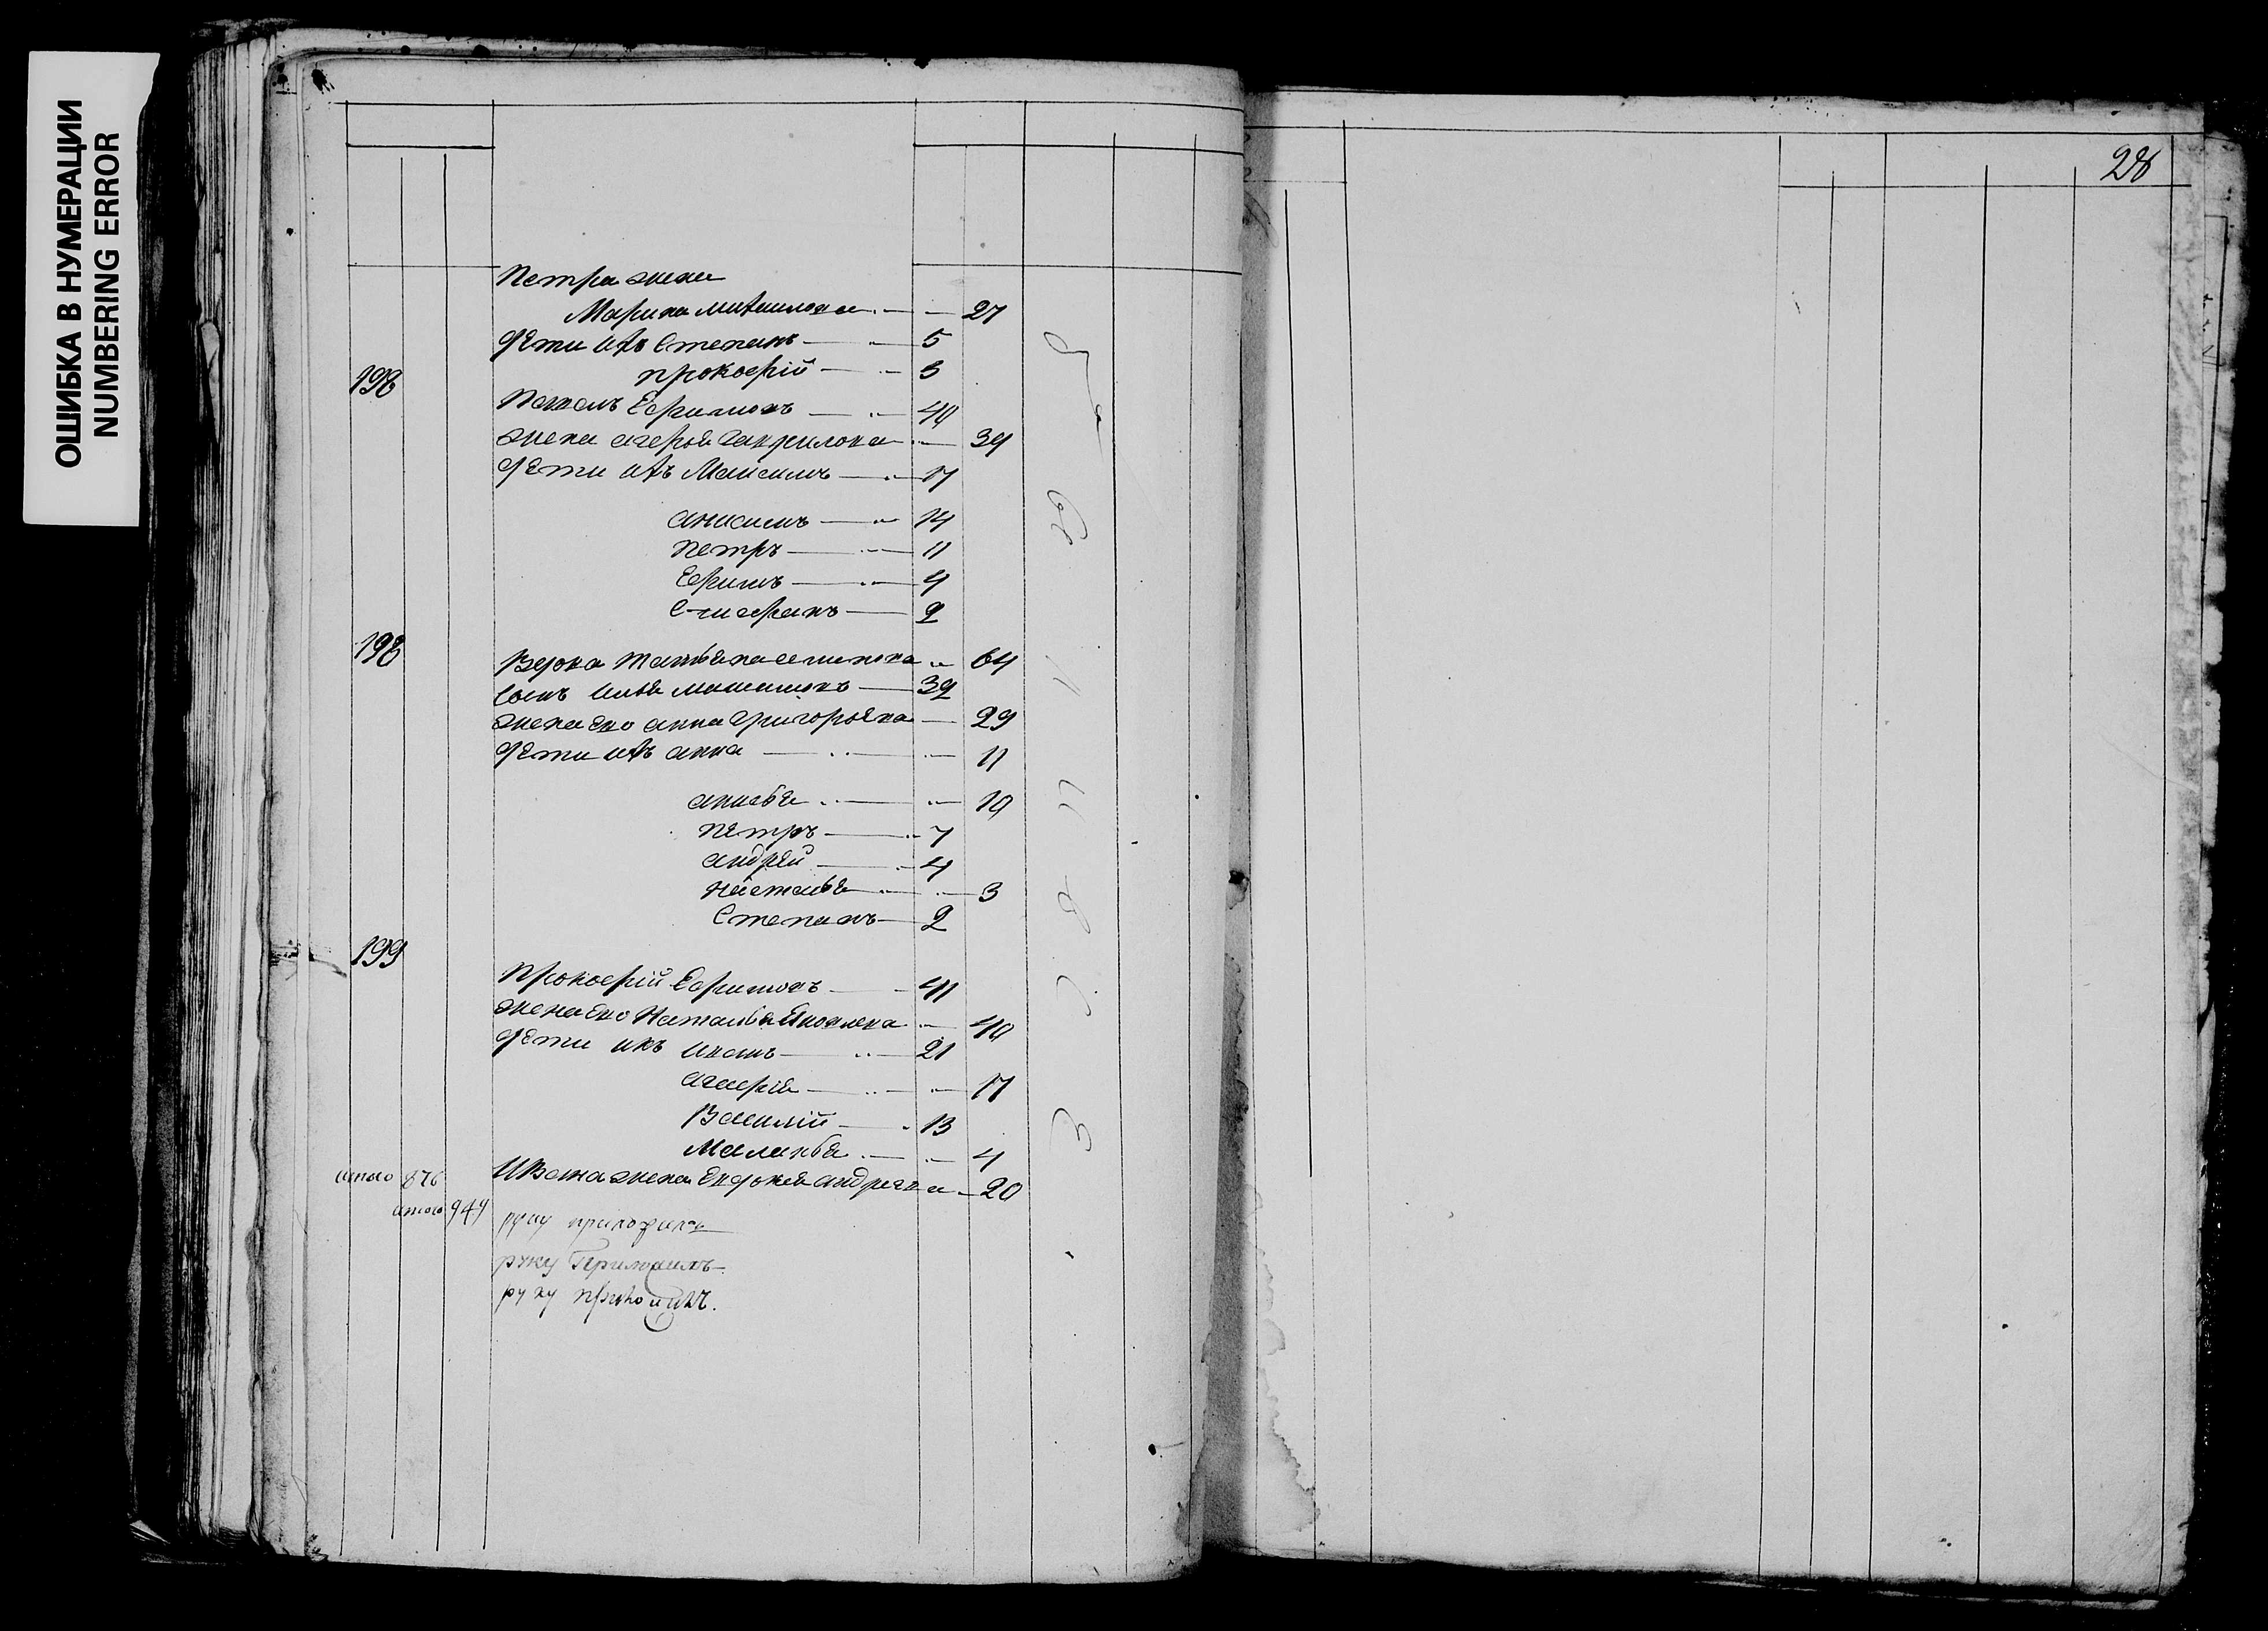 ОШИБКА В НУМЕРАЦИИ
NUMBERING ERROR
28
Петра жена
Марина Михаилова 27
Дети ихъ Степанъ 5
198 Прокофій 3
Ефимовъ 40
жена Агафья Гаврилова 39
дети ихъ Максимъ 17
Анисимъ 14
Петръ 11
Ефимъ 4
2
198 Вдова Татьяна 64
сынъ Илья 32
жена его Анна Григорьева 29
дети ихъ Анна 11
Анисья 10
Петръ 7
Андрей 4
Наталья 3
Степанъ 2
199
Прокофій Ефимовъ 41
жена его Наталья Яковлева 40
дети ихъ Иванъ 21
17
Василій 13
Маланья 4
итого 876 Ивана жена Евдокия Андреева 20
итого 949 руку приложилъ
руку Приложилъ
руку приложилъ.